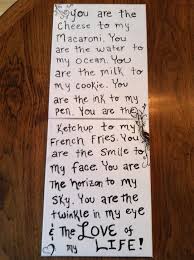 you are the
Cheese to my
Macaroni. You
are the water to
my ocean. You
are the milk to
my cookie. You
are the ink to my
pen. You are the
Ketchup to my
French Fries. You
are the Smile to
my face. You are
The horizon to my
Sky. You are the
twinkle in my eye
& The LOVE of
my LIFE!